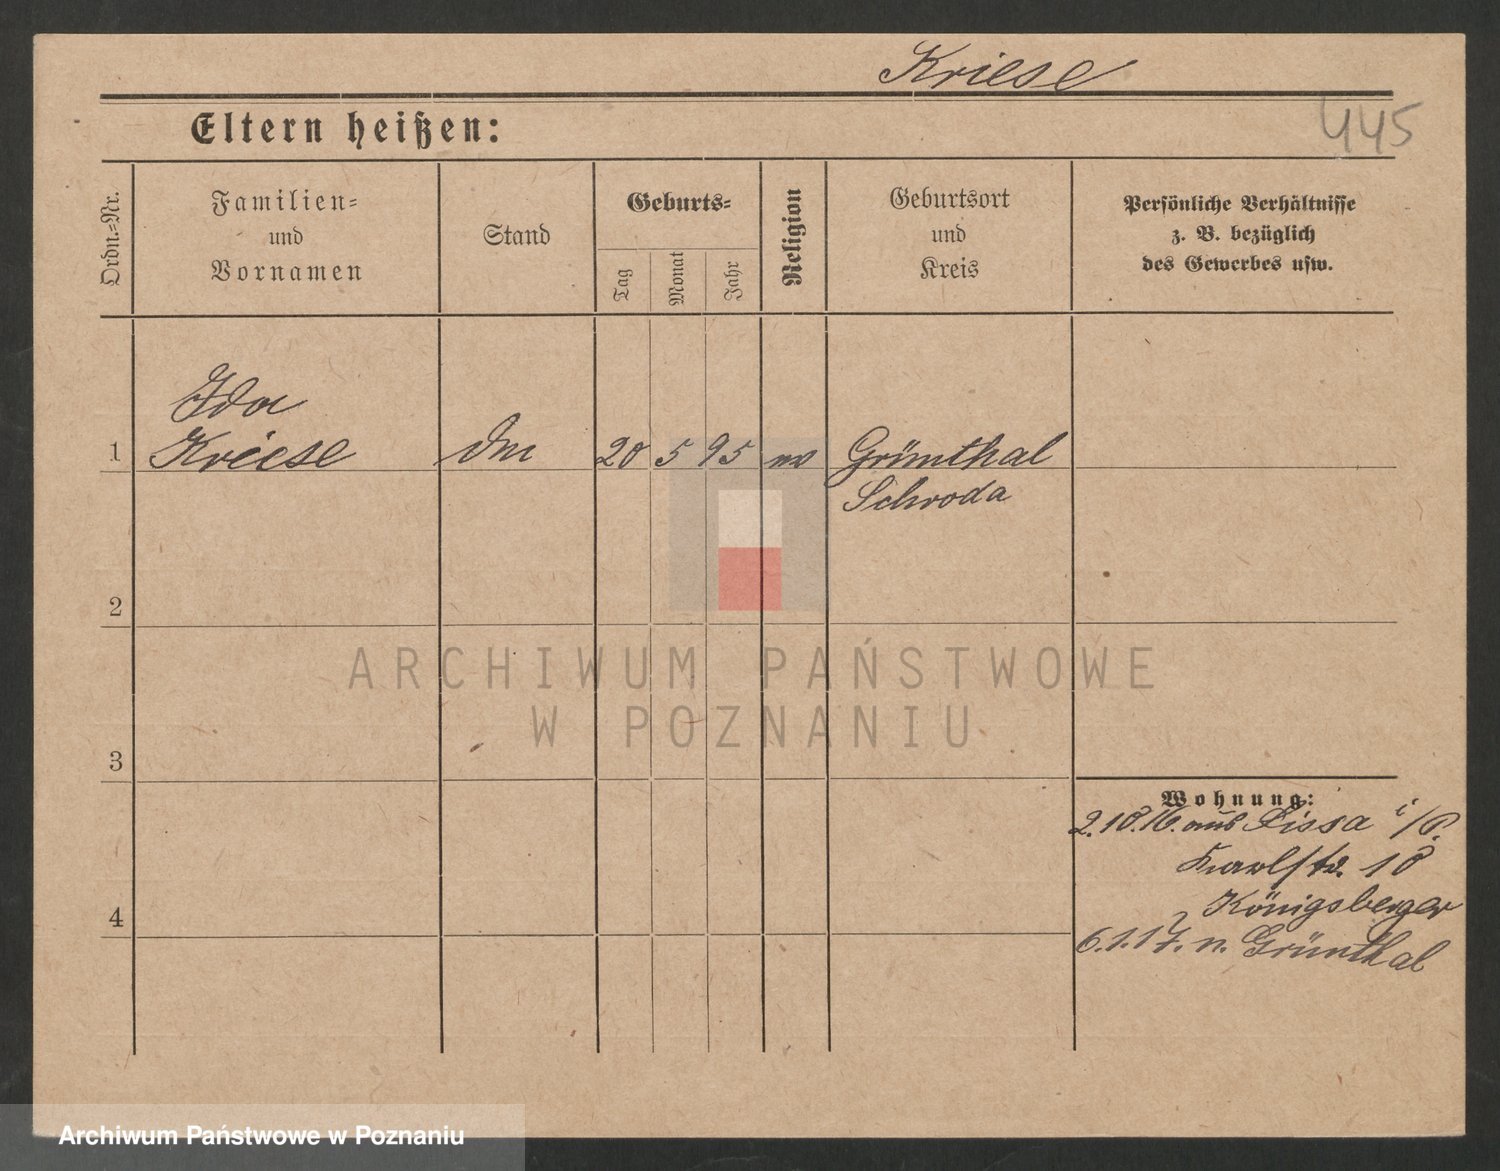 Kriese
445
Eltern heißen:
Ordn.=Nr.
Familien=
und
Vornamen
Stand
Geburts=
Tag
Monat
Jahr
Religion
Geburtsort
und
Kreis
Persönliche Verhältnisse
z. B. bezüglich
des Gewerbes usw.
Ida
1 Kriese 20 5 95 Grünthal
Schroda
2
ARCHIWUM PAŃSTWOWE
W POZNANIU
3
Wohnung:
2.10.16. aus Lissa i/P.
Karlstr. 18
Königsberger
4
6.1.17. n. Grünthal
Archiwum Państwowe w Poznaniu